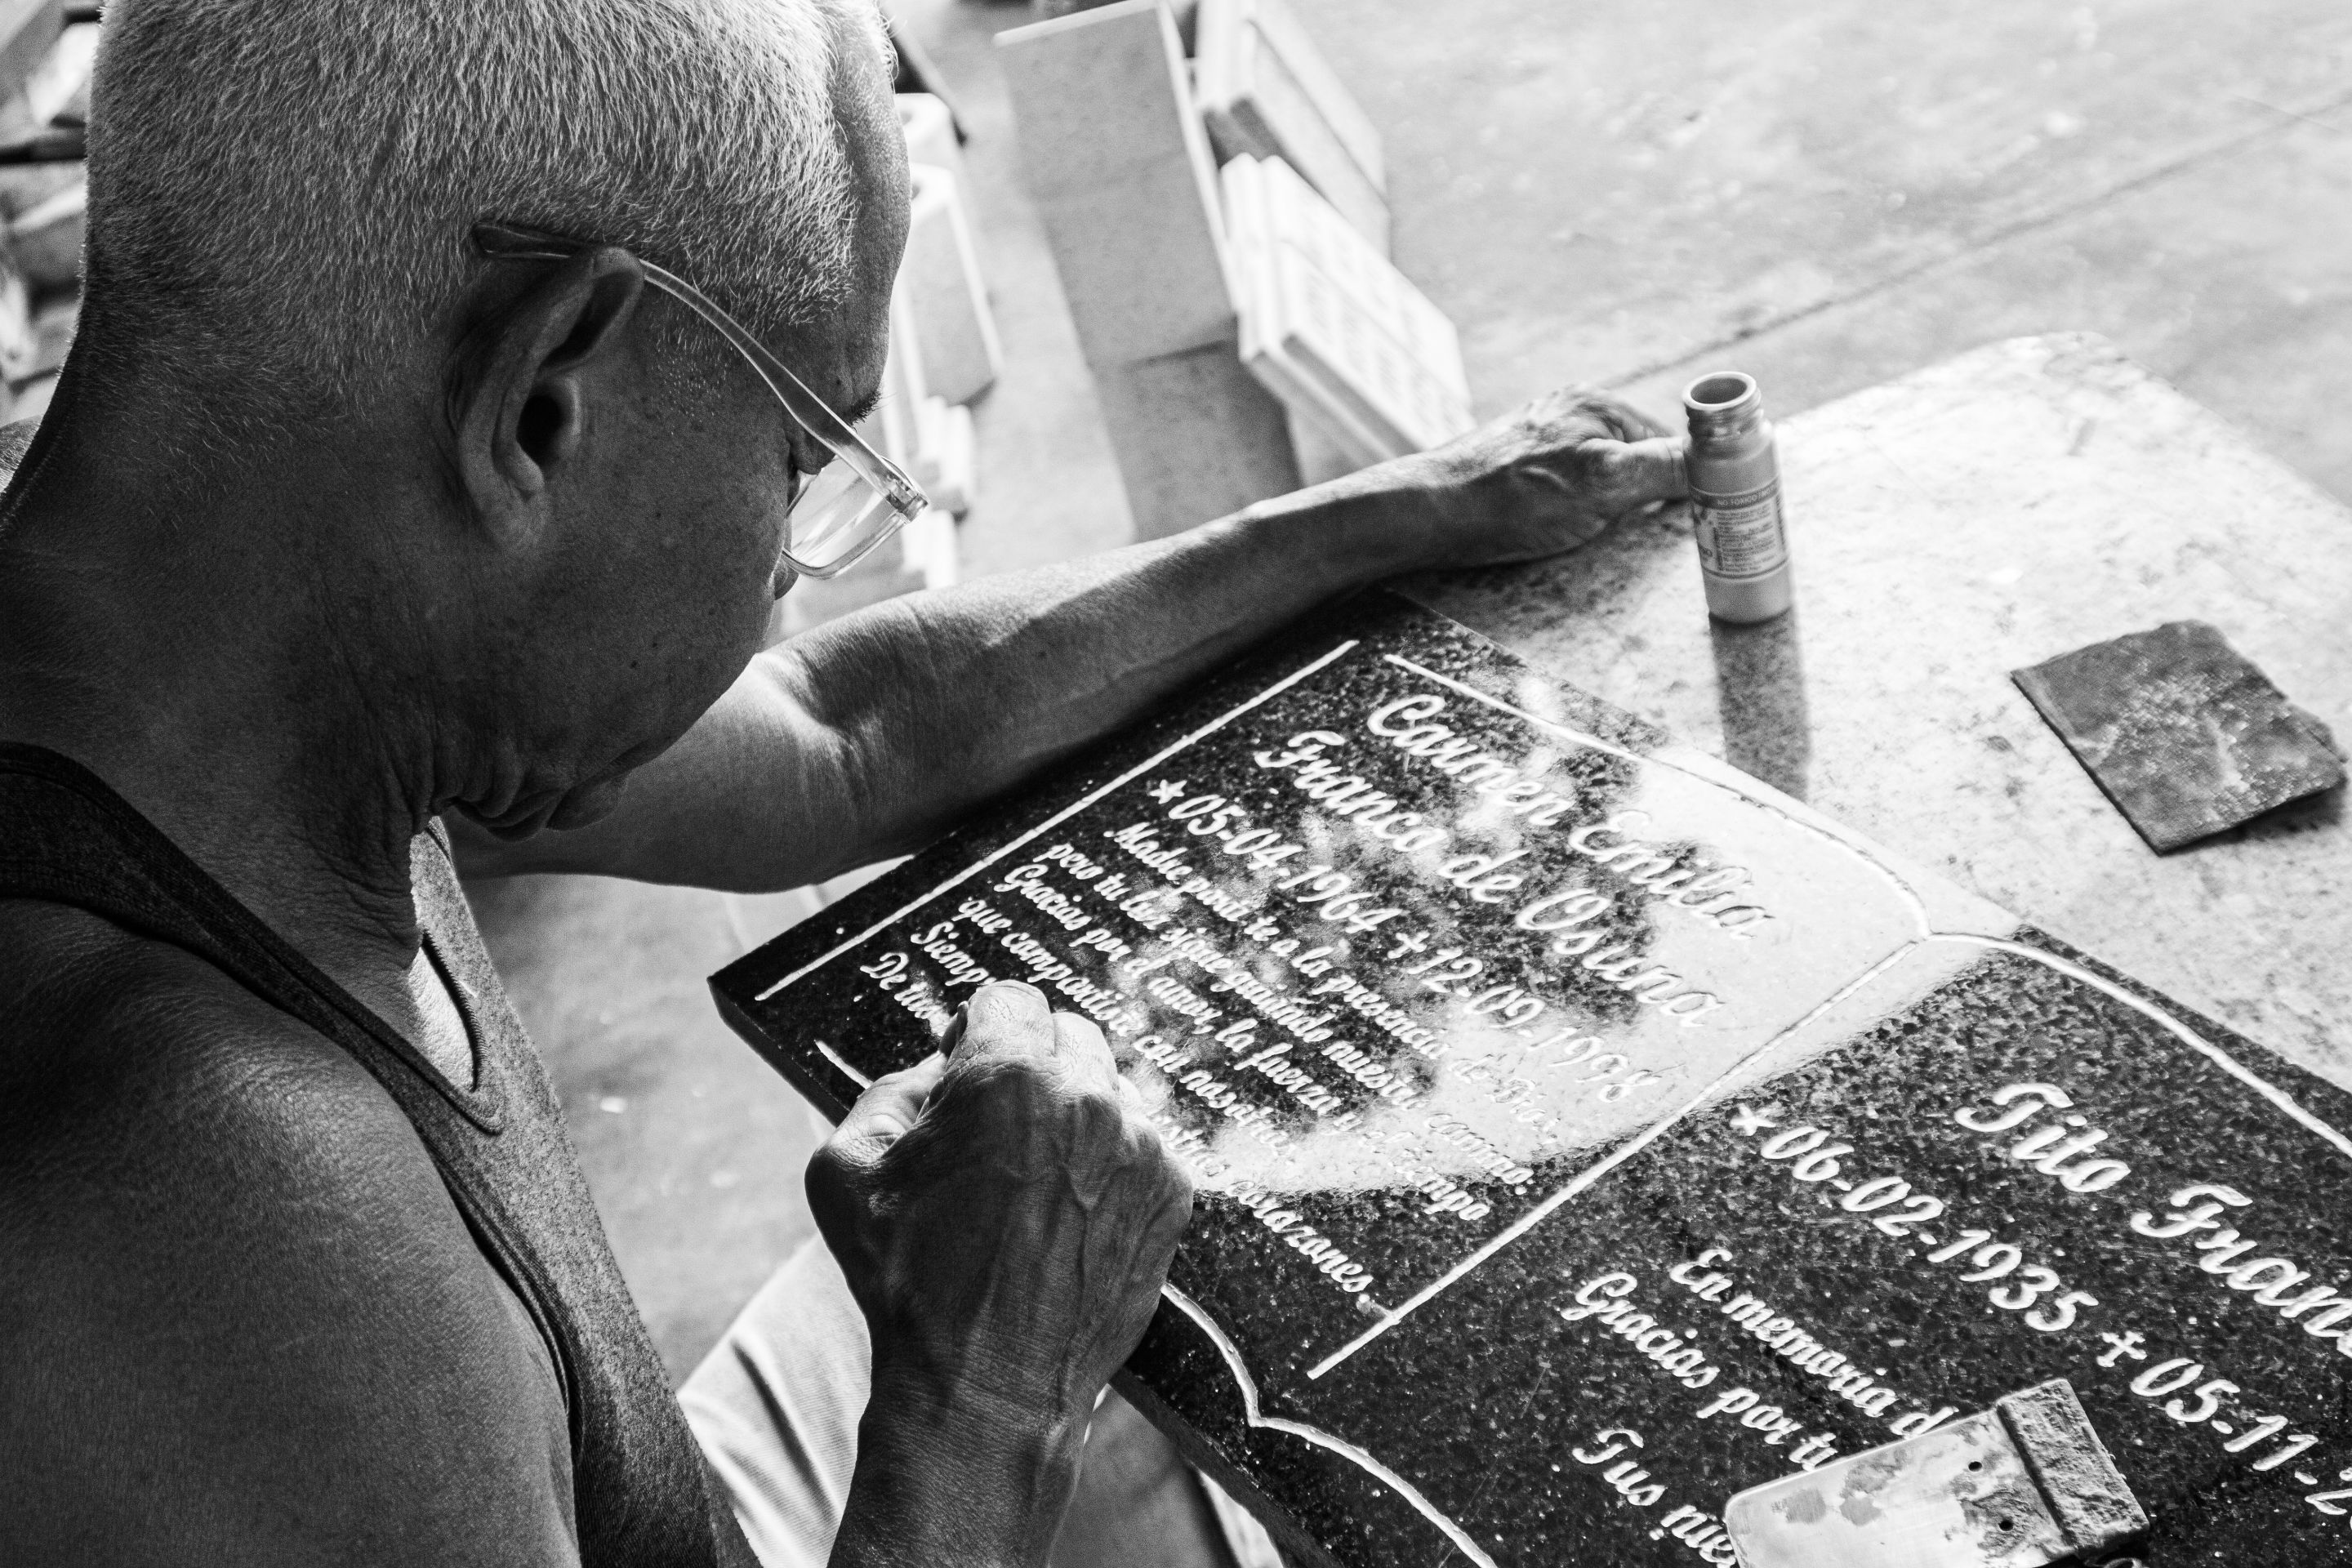 Carmen Emilia
Franco de Osuna
★05-04-1964 ✝12-09-1998
Madre partiste a la presencia de Dios,
pero tu luz sigue guiando nuestro camino.
Gracias por el amor, la fuerza y el tiempo
que compartiste con nosotros.
Siemp corazones
De tus
Tito Fran
★06-02-1935 ✝05-11-2
En memoria d
Gracias por tu
Tus nie
NO TOXICO